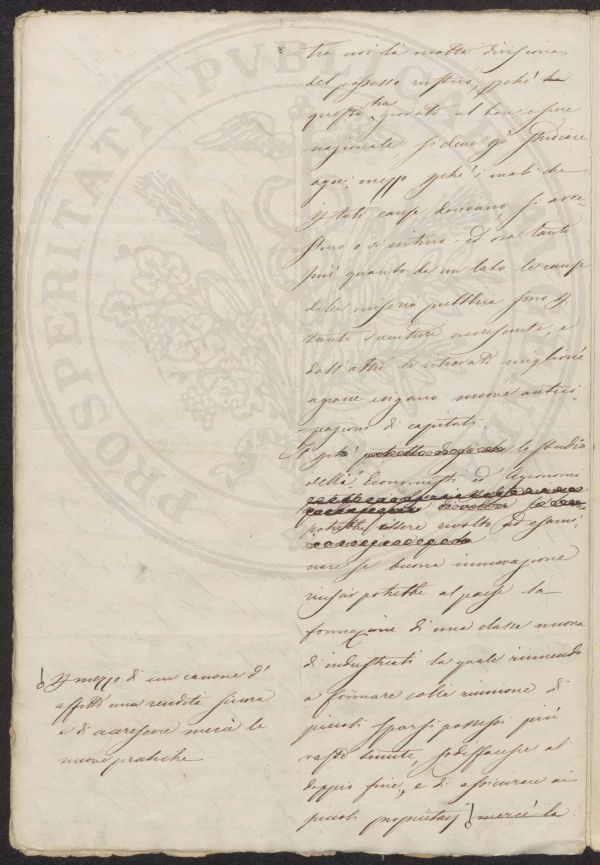 tra noi la molta divisione
del possesso rustico, pchè
questo ha giovato al ben essere
nazionale, si deve
ogni mezzo pchè i mali che
cause derivano, si arre-
-stino o si ed ora tanto
più quanto da un lato le cause
della miseria pubblica sono
tanto accresciute, e
dall'altro le migliorie
agrarie esigono nuove antici-
-pazioni di capitali.
lo studio
degli Economisti ed Agronomi
potrebbe essere rivolto ad esami-
nare se buona innovazione
riuscir potrebbe al paese la
formazione di una classe nuova
di industriali la quale riunendo
a formare colla riunione di
piccoli sparsi possessi più
vaste tenute, sodisfacesse al
doppio fine, e di assicurare ai
piccoli proprietarj mercè la
mezzo di un canone d'
affitto una rendita sicura
e di accrescere mercè le
nuove pratiche
PROSPERITATI PVBLICAE